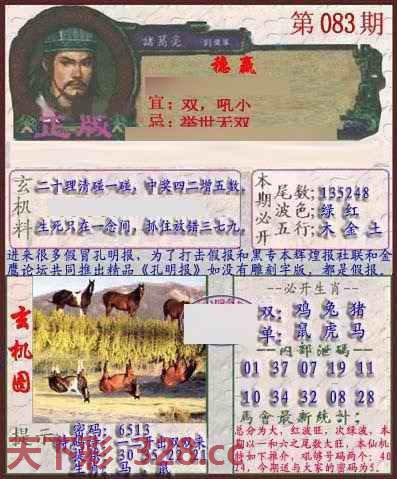 第083期
諸葛亮
稳赢
宜：双，吼小
忌：举世无双
正版
玄机料
二十理清碰一碰，中奖四二增五数。
生死只在一念间，抓住故错三七九。
本期必开
尾数；135248
波色；绿 红
五行；木 金 土
进来很多假冒孔明报，为了打击假报和黑专本辉煌报社联和金
鹰论坛共同推出精品《孔明报》如没有雕刻字版，都是假报。
玄机图
必开生肖
双：鸡 兔 猪
单：鼠 虎 马
内部泄码
01 37 07 19 11
10 34 32 08 28
馬會最新統計：
总分为大，红波旺，次绿波，本
期以一和六之尾数大旺，本仙机
特如下推介，吼够号码两个：40
24，今期送与大家的密码为5.
提示
密码：6513
30 35 22 21
天下彩-328.cc